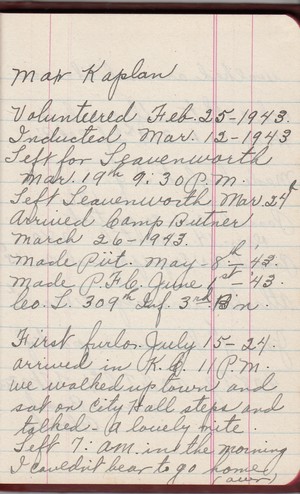 Max Kaplan
Volunteered Feb. 25-1943.
Inducted Mar. 12-1943
Left for Leavenworth
Mar. 19th 9:30 P.M.
Left Leavenworth Mar. 24th
Arrived Camp Butner
March 26-1943.
made Pvt. May-8th-'43.
made P.F.C. June 1st-'43.
Co. L. 309th Inf. 3rd Bn.
First furlo. July 15-24.
arrived in K.C. 11 P.M.
we walked up town and
sat on City Hall steps and
talked - A lovely nite.
Left 7: A.M. in the morning
I couldn't bear to go home
(over)